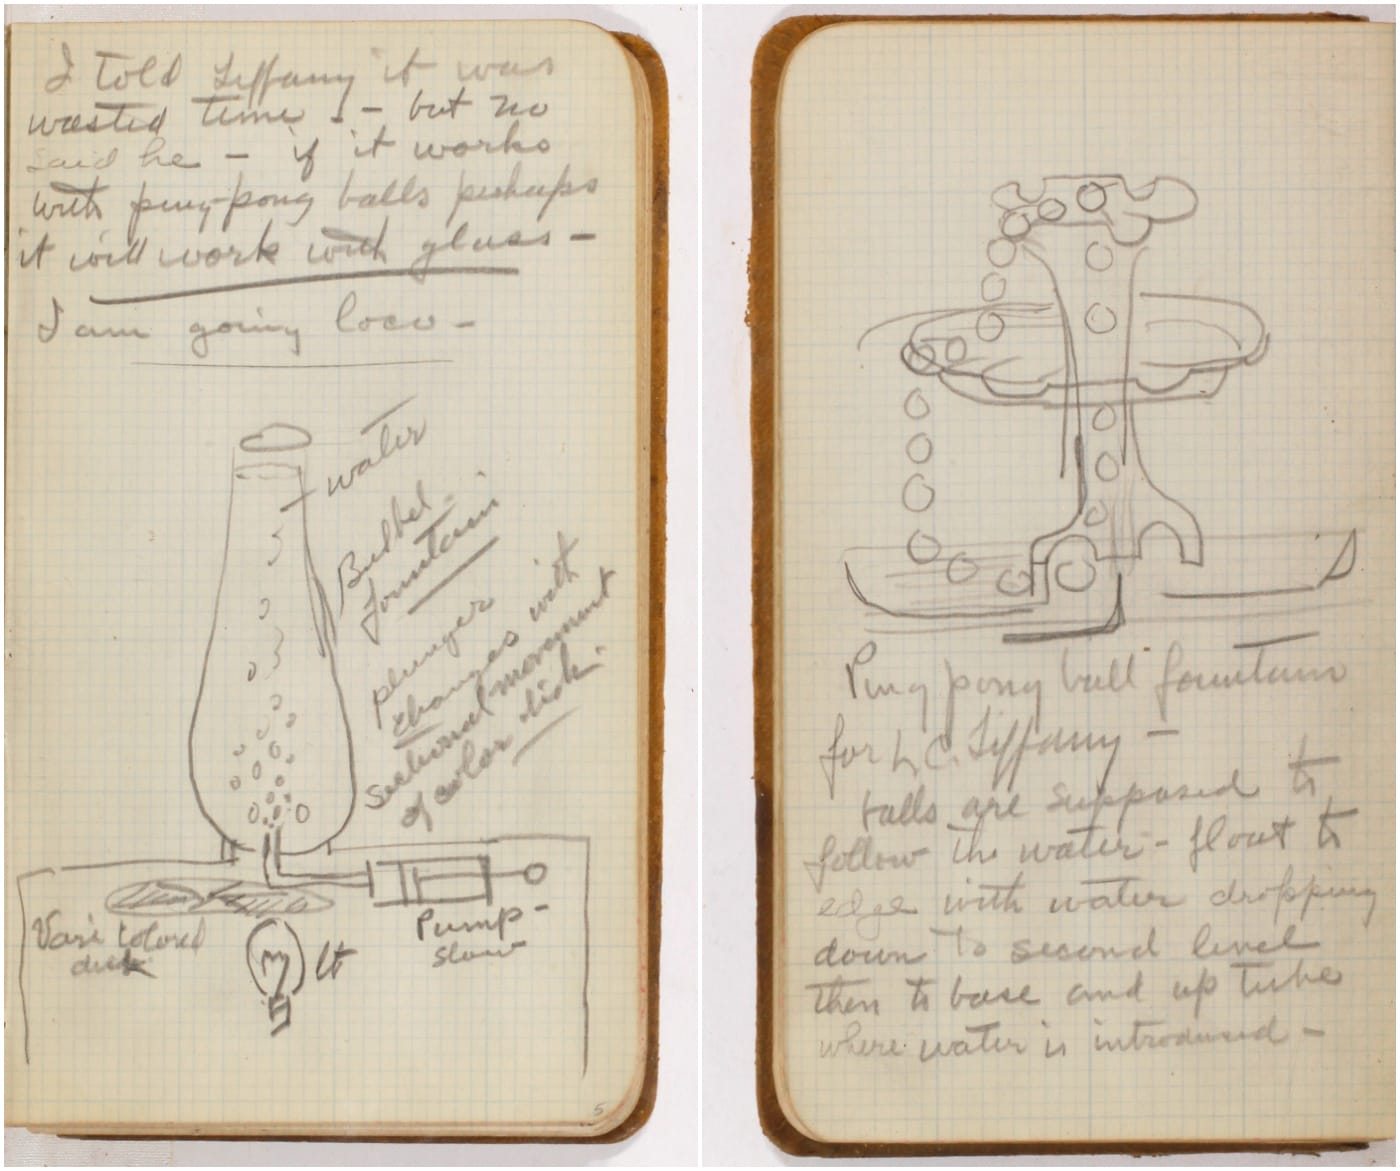 I told Tiffany it was
wasted time - - but no
said he - if it works
with ping-pong balls perhaps
it will work with glass -
I am going loco -
water
Bubbel
fountain
plunger
changes with
sectional movement
of color disk.
Vari colored
disk
lt
Pump -
slow
5
Ping pong ball fountain
for L. C. Tiffany -
balls are supposed to
follow the water - float to
edge with water dropping
down to second level
then to base and up tube
where water is introduced -